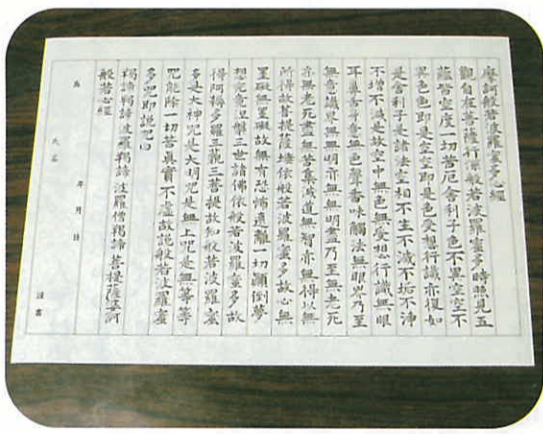 摩訶般若波羅蜜多心經
觀自在菩薩行深般若波羅蜜多時照見五
蘊皆空度一切苦厄舍利子色不異空空不
異色色即是空空即是色受想行識亦復如
是舍利子是諸法空相不生不滅不垢不淨
不增不減是故空中無色無受想行識無眼
耳鼻舌身意無色聲香味觸法無眼界乃至
無意識界無無明亦無無明盡乃至無老死
亦無老死盡無苦集滅道無智亦無得以無
所得故菩提薩埵依般若波羅蜜多故心無
罣礙無罣礙故無有恐怖遠離一切顛倒夢
想究竟涅槃三世諸佛依般若波羅蜜多故
得阿耨多羅三藐三菩提故知般若波羅蜜
多是大神咒是大明咒是無上咒是無等等
咒能除一切苦真實不虛故說般若波羅蜜
多咒即說咒曰
羯諦羯諦波羅羯諦波羅僧羯諦菩提薩婆訶
般若心經
為
年月日
氏名 謹書